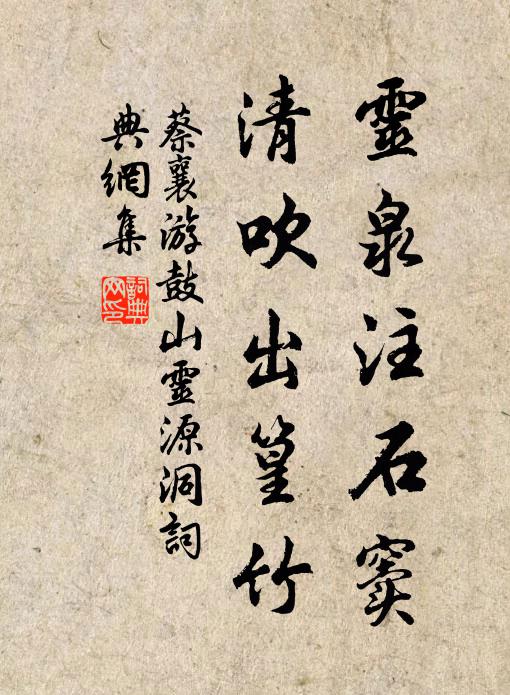 靈泉注石竇
清吹出篁竹
蔡襄游鼓山靈源洞詞
典網集
詞典網印